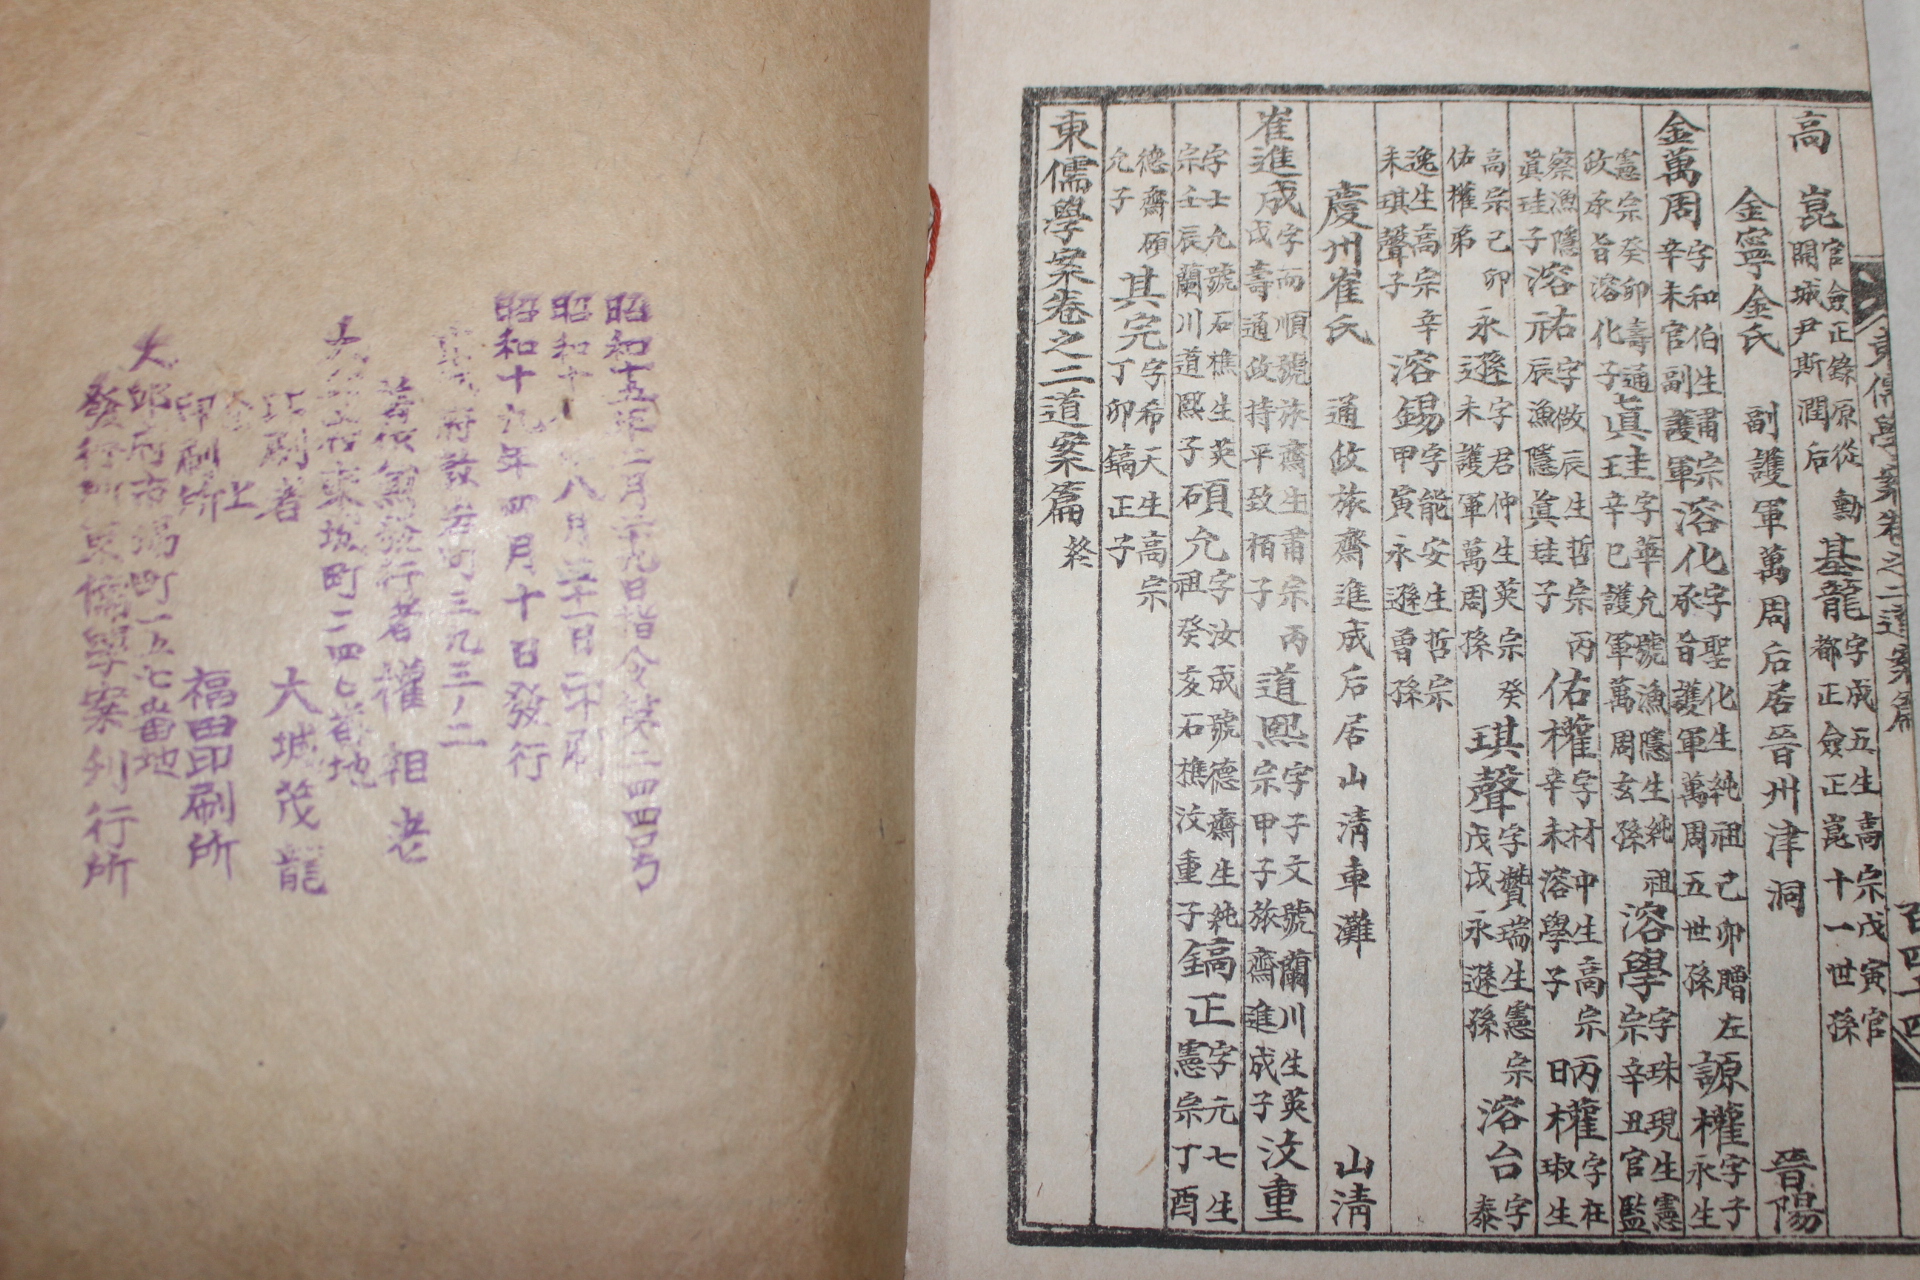 高 崑 官僉正錄原從勳開城尹斯潤后 基龍 字成五生高宗戊寅官都正僉正崑十一世孫
金寧金氏 副護軍萬周后居晉州津洞 晉陽
金萬周 字和伯生肅宗辛未官副護軍 溶化 字聖化生純祖己卯贈左承旨護軍萬周五世孫 源權 字子永生
憲宗癸卯壽通政承旨溶化子 眞珪 字華允號漁隱生純祖辛巳護軍萬周玄孫 溶學 字珠現生憲宗辛丑官監
察漁隱眞珪子 溶祐 字做辰生哲宗丙辰漁隱眞珪子 佑權 字材中生高宗辛未溶學子 日權 字在淑生
高宗己卯佑權弟 永遜 字君仲生英宗癸未護軍萬周孫 琪聲 字贊瑞生憲宗戊戌永遜孫 溶台 字泰
逸生高宗辛未琪聲子 溶錫 字能安生哲宗甲寅永遜曾孫
慶州崔氏 通政旅齋進成后居山淸車灘 山淸
崔進成 字而順號旅齋生肅宗丙戌壽通政持平致栢子 道熙 字子文號蘭川生英宗甲子旅齋進成子 汶重
字士允號石樵生英宗壬辰蘭川道熙子 碩允 字汝成號德齋生純祖癸亥石樵汶重子 鎬正 字元七生憲宗丁酉
德齋碩允子 其完 字希天生高宗丁卯鎬正子
東儒學案卷之二道案篇 終
昭和十五年二月十九日指令第二四四号
昭和十八月三十一日印刷
昭和十九年四月十日發行
府 町三九三ノ二
著作兼發行者 權相老
大邱府東城町二四七番地
印刷者 大城茂龍
印刷所 福田印刷所
大邱府市場町一五七番地
發行所 東儒學案刊行所